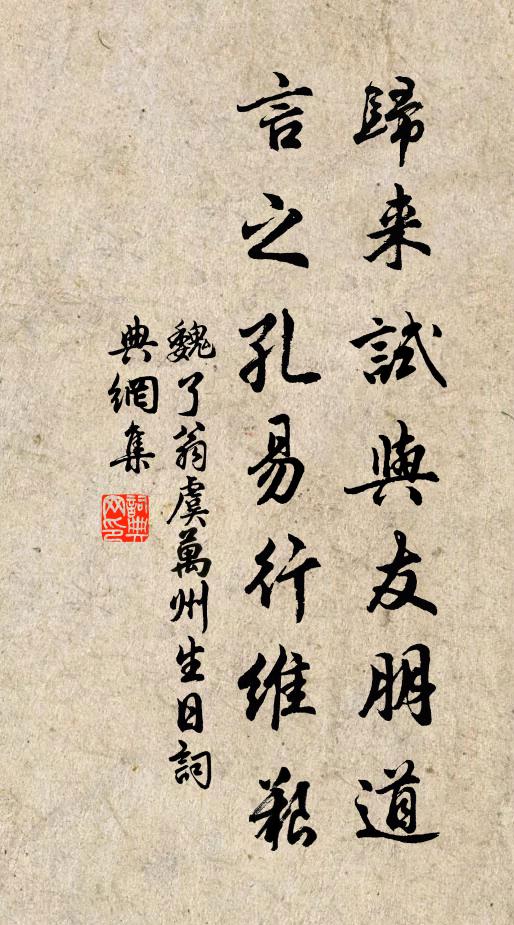 歸来試與友朋道
言之孔易行維艱
魏了翁虞萬州生日詞
典網集
詞典网印